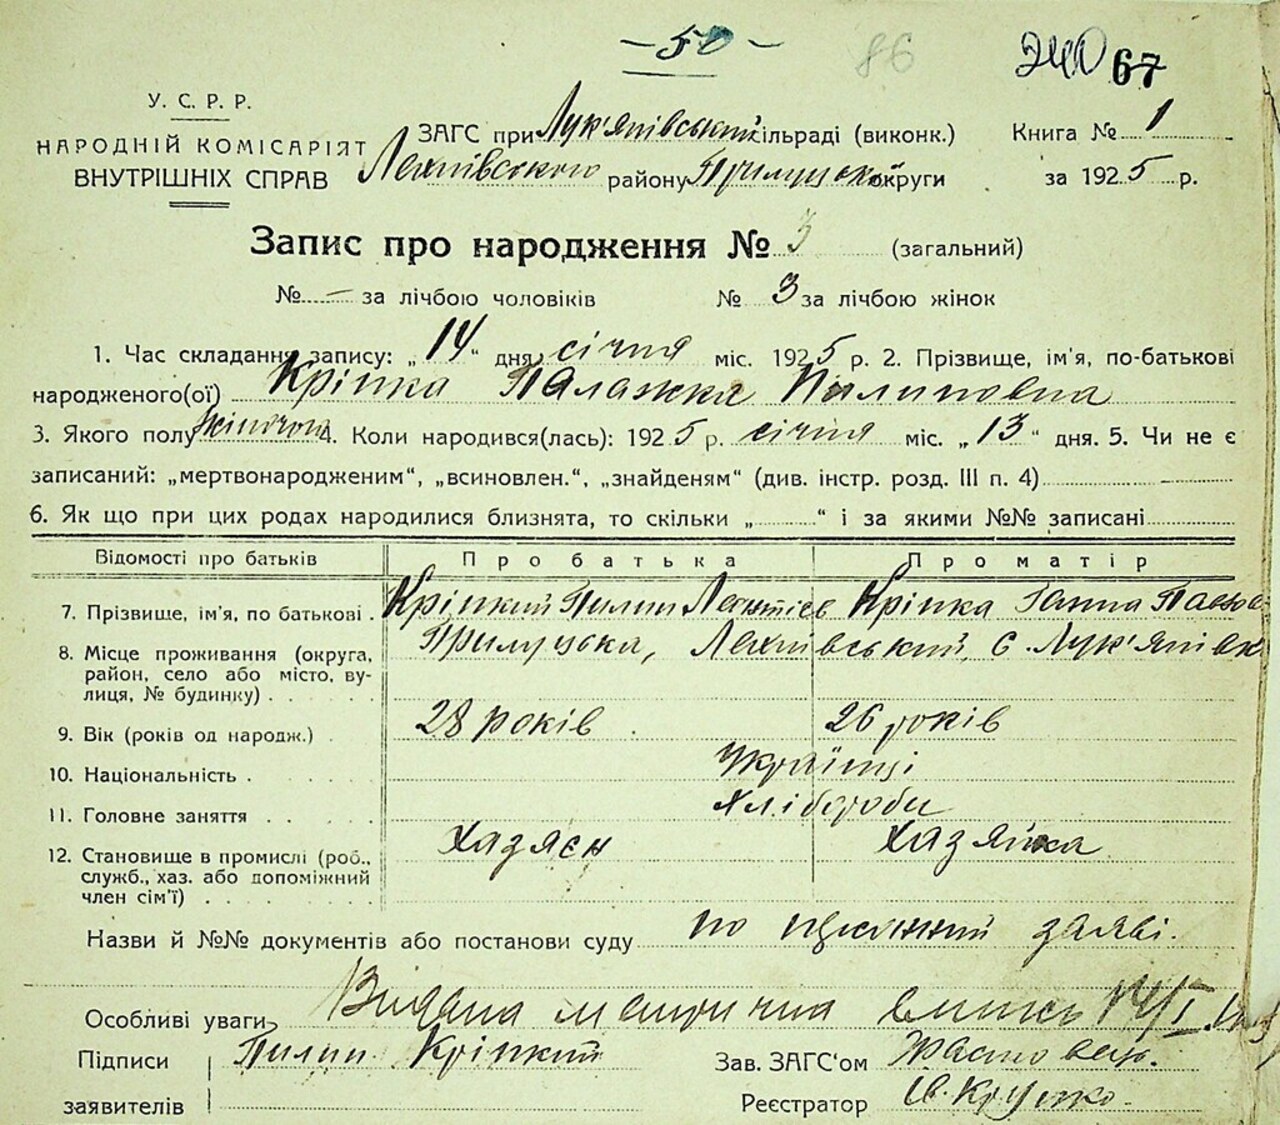 - 50 -
86
240 67
У. С. Р. Р.
НАРОДНІЙ КОМІСАРІЯТ
ВНУТРІШНІХ СПРАВ
ЗАГС при Лук'янівський сільраді (виконк.) Книга № 1
району Прилуцької округи за 1925 р.
Запис про народження № 3 (загальний)
№ – за лічбою чоловіків № 3 за лічбою жінок
1. Час складання запису: „14“ дня січня міс. 1925 р. 2. Прізвище, ім'я, по-батькові
народженого(ої) Кріпка Палажка Пилиповна
3. Якого полу жіночого 4. Коли народився(лась): 1925 р. січня міс. „13“ дня. 5. Чи не є
записаний: „мертвонародженим“, „всиновлен.“, „знайденям“ (див. інстр. розд. III п. 4)
6. Як що при цих родах народилися близнята, то скільки „ “ і за якими №№ записані
Відомості про батьків Про батька Про матір
7. Прізвище, ім'я, по батькові . Кріпкий Пилип Леонтієв Кріпка Ганна Павлов
8. Місце проживання (округа, Прилуцька, Лехнівський, с. Лук'янівк
район, село або місто, ву-
лиця, № будинку) .
9. Вік (років од народж.) . 28 років 26 років
10. Національність . Українці
11. Головне заняття . . Хлібороби
12. Становище в промислі (роб., Хазяєн Хазяйка
служб., хаз. або допоміжний
член сім'ї) . .
Назви й №№ документів або постанови суду по заяві.
Особливі уваги Видана метрична випис 14/I
Підписи Пилип Кріпкий Зав. ЗАГС'ом
заявителів Реєстратор